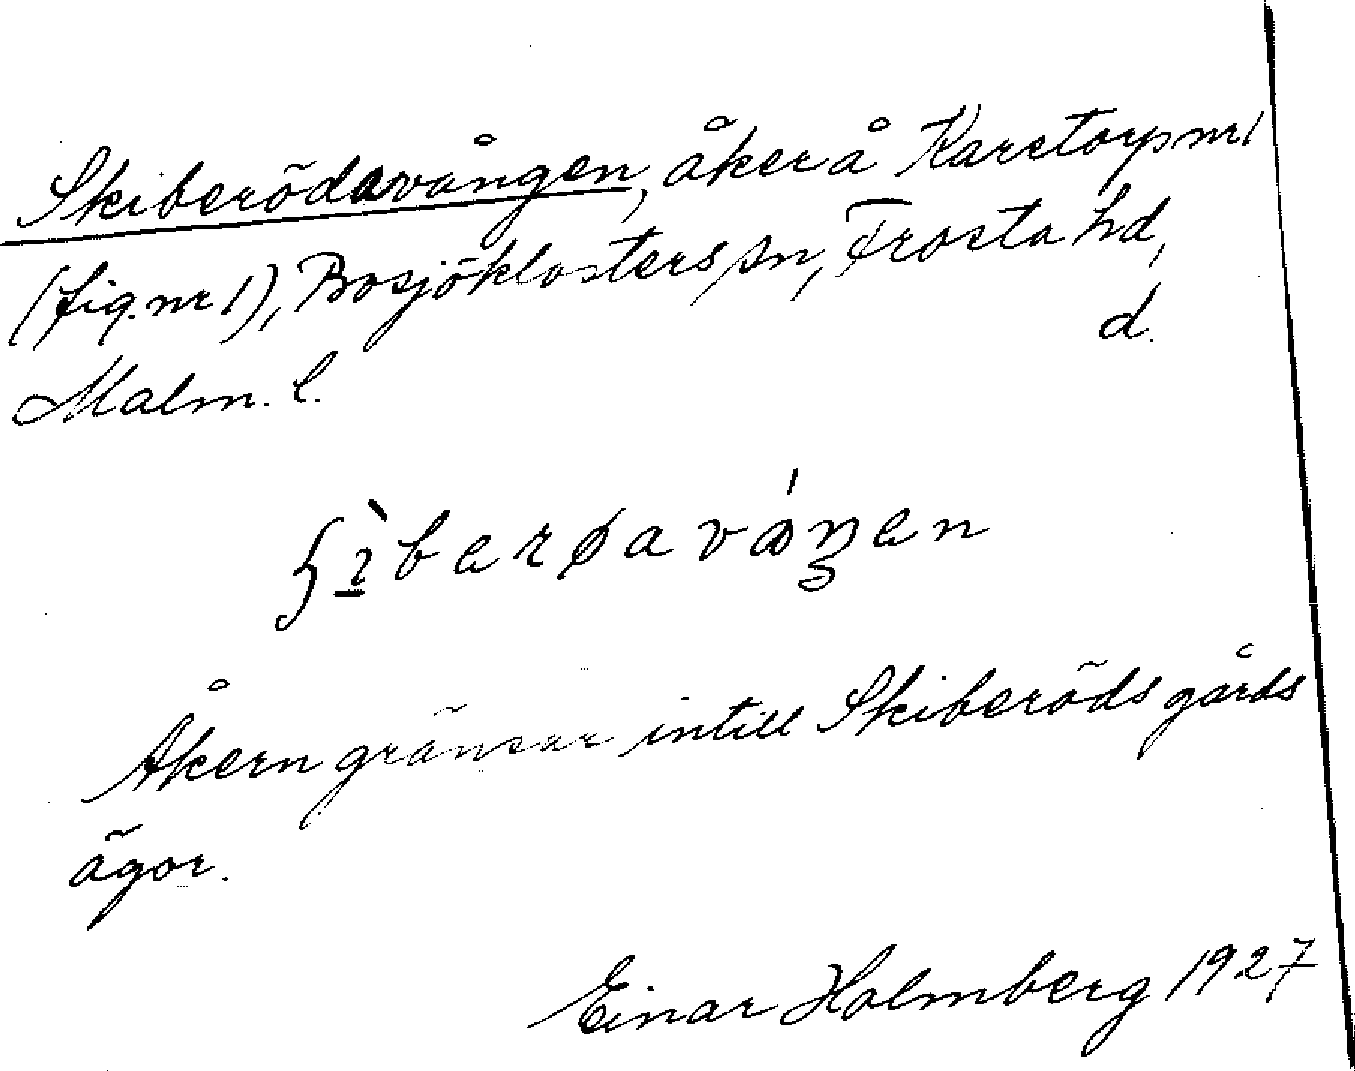 Skiberödavången, åker å Karetorp nr 1
(fig. nr 1), Bosjöklosters sn, Frosta hd,
d.
Malm. l.
Åkern gränsar intill Skiberöds gårds
ägor.
Einar Holmberg 1927